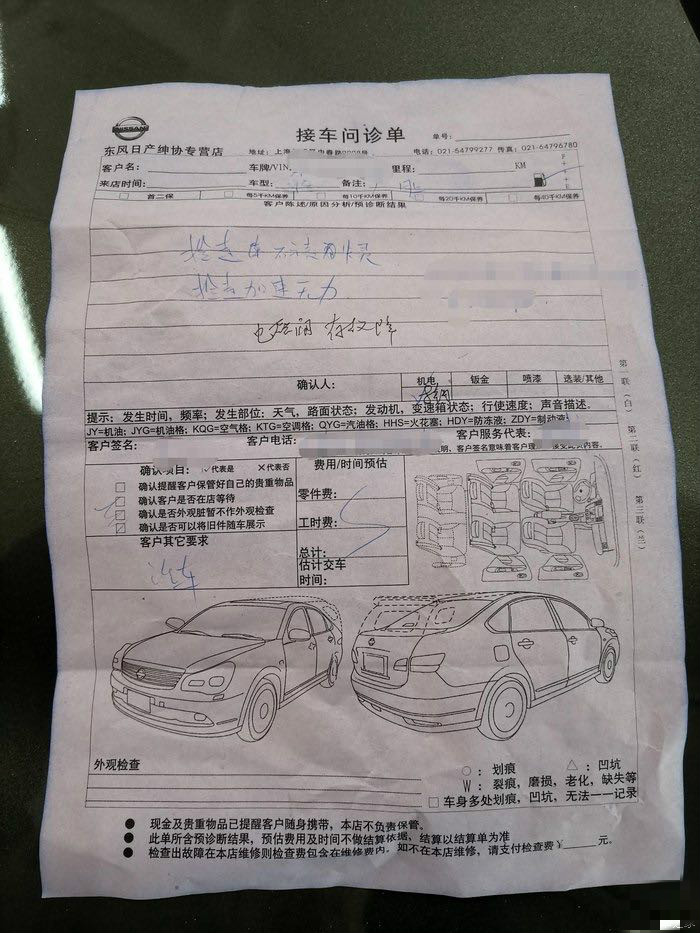 NISSAN
接车问诊单
单号:
东风日产绅协专营店
地址:上海 电话:021-54799277 传真:021-64796780
客户名: 车牌/VIN: 里程: KM
来店时间: 车型: 备注:
首二保 每5千KM保养 每10千KM保养 每20千KM保养 每40千KM保养
客户陈述/原因分析/预诊断结果
检查
检查加速无力
确认人: 机电 钣金 喷漆 选装/其他
提示:发生时间,频率;发生部位:天气,路面状态;发动机,变速箱状态;行使速度;声音描述。
JY=机油;JYG=机油格;KQG=空气格;KTG=空调格;QYG=汽油格;HHS=火花塞;HDY=防冻液;ZDY=制动液
客户签名: 客户电话: 客户服务代表:
明,客户签名意味着客户理 内容.
确认项目: √代表是 ×代表否
费用/时间预估
确认提醒客户保管好自己的贵重物品
确认客户是否在店等待
确认是否外观脏暂不作外观检查
确认是否可以将旧件随车展示
零件费:
工时费:
总计:
估计交车
时间:
客户其它要求
洗车
第一联(白)
第二联(红)
第三联(兰)
外观检查
○:划痕 △:凹坑
W:裂痕,磨损,老化,缺失等
车身多处划痕,凹坑,无法一一记录
● 现金及贵重物品已提醒客户随身携带,本店不负责保管。
● 此单所含预诊断结果,预估费用及时间不做结算依据,结算以结算单为准
● 检查出故障在本店维修则检查费包含在维修费内。如不在本店维修,请支付检查费¥ 元。